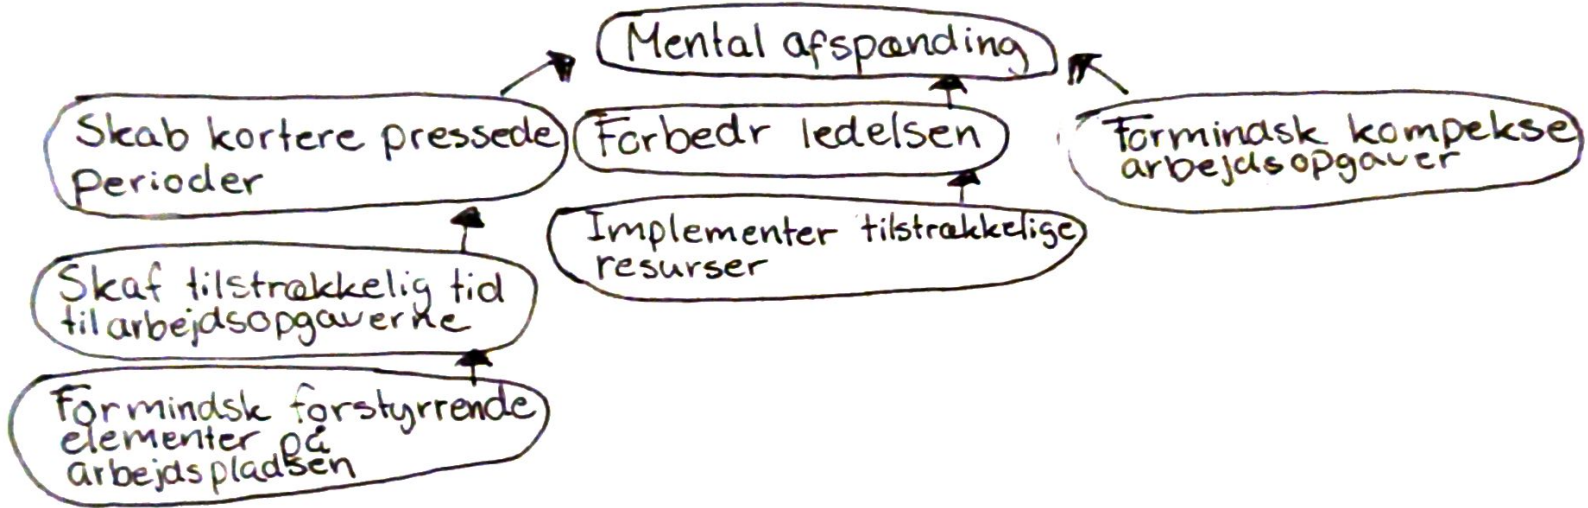 Mental afspænding
Skab kortere pressede
perioder
Forbedr ledelsen
Formindsk kompekse
arbejdsopgaver
Implementer tilstrækkelige
resurser
Skaf tilstrækkelig tid
til arbejdsopgaverne
Formindsk forstyrrende
elementer på
arbejdspladsen